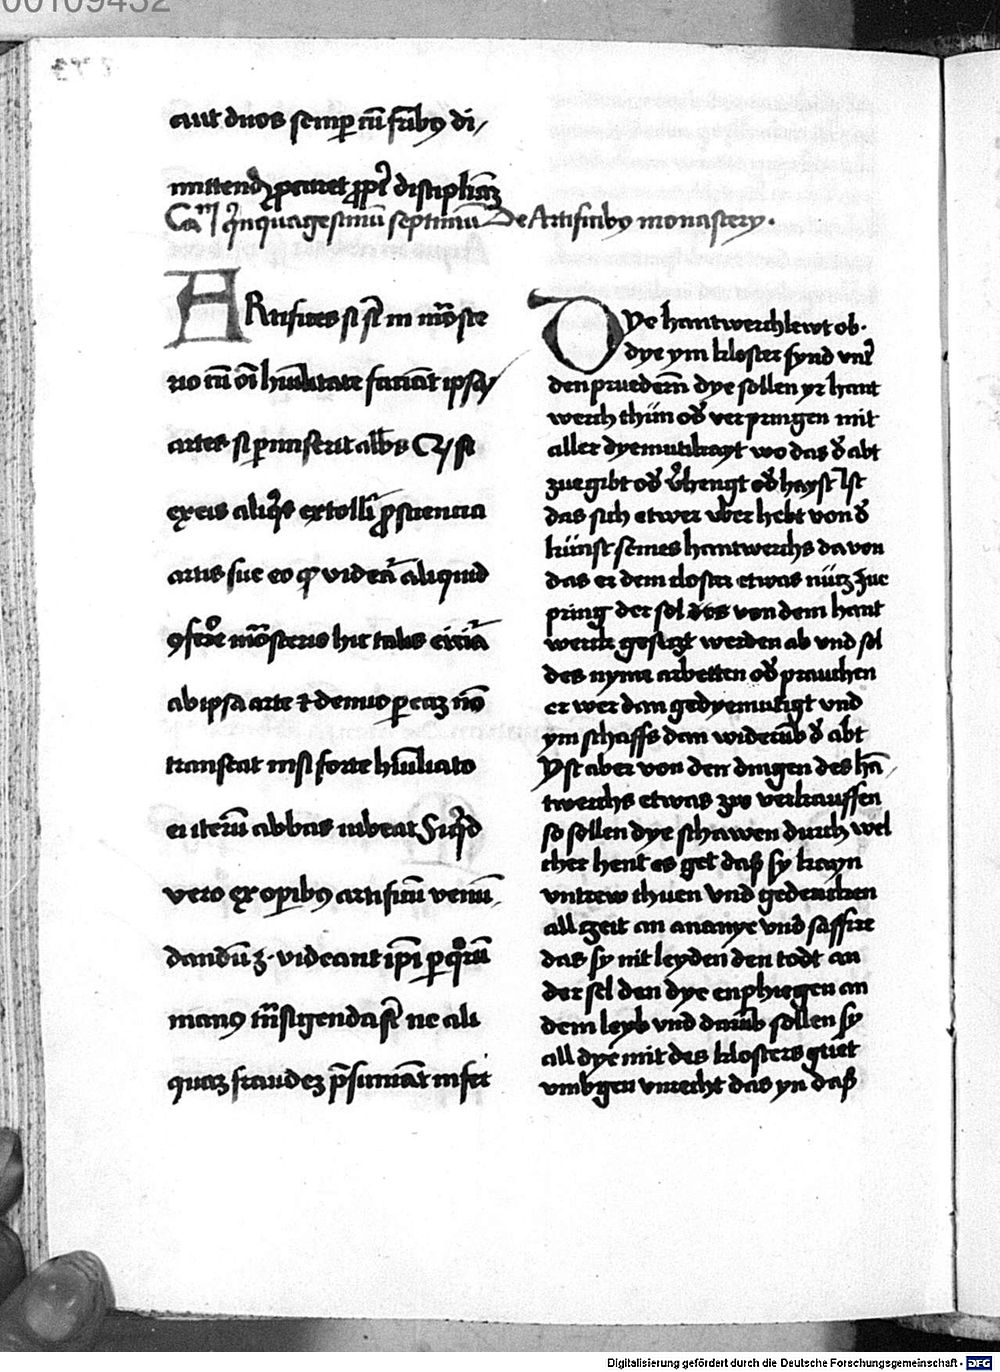 00109432
aut duos semp cū frībꝯ di/
mittendꝫ ꝓcuret ꝓpt̄ disciplinā
Caᵐ Q̄nquagesimū septimū De Artificibꝯ monastery.
ARtifices si sūt in mōste
rio cū oī hūilitate faciāt ipsas
artes si ꝑmiserit abbas Qꝫ si
ex eis aliq̄s extollit̄ ꝓ sciencia
artis sue eo ꝙ videat̄ aliquid
ꝯferre mōsterio hic talis erigat̄
ab ipsa arte ⁊ denuo ꝑ eaꝫ nō
transeat nisi forte hūiliato
ei iterū abbas iubeat Si q̄d
vero ex opibꝯ artificū venū/
dandū ē. videant ip̄i ꝑ quoꝝ
manꝯ trāsigenda sūt ne ali
quaꝫ fraudeꝫ p̄sumāt inferre
DYe hantwerchlewt ob
dye ym kloster synd vnt̄
den pruedern̄ dye sollen yr hant
werch thün od̄ verpringen mit
aller dyemutikayt wo das d̄ abt
zue gibt od̄ v̄hengt od̄ hayst Ist
das sich etwer vb̄er hebt von d̄
künst seines hantwerchs da von
das er dem closter etwas nütz zue
pring der sol des von dem hant
werch gesetzt werden ab vnd sol
des nymer arbetten od̄ prauchen
er wer dan gedyemutigt vnd
ym schaffs dan widerūb d̄ abt
Yst aber von den dingen des hā/
twerchs etwas zue verkauffen
so sollen dye schawen durch wel
cher hent es get daß sy kayn
vntrew thuen vnd gedencken
all zeit an ananye vnd saffire
das sy nit leyden den todt an
der sel den dye enphiegen an
dem leyb vnd darūb sollen sy
all dye mit des klosters guet
vmbgen vnrecht das yn daß
Digitalisierung gefördert durch die Deutsche Forschungsgemeinschaft - DFG